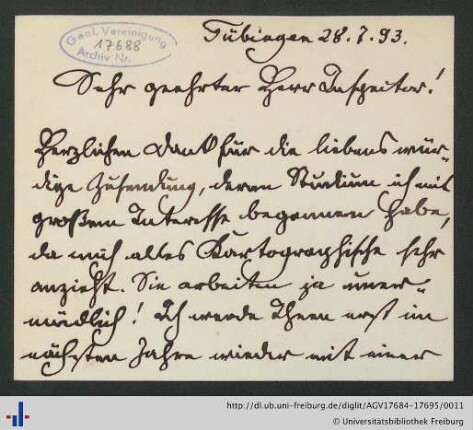 Geol. Vereinigung
17688
Archiv Nr.
Tübingen 28.7.93.
Sehr geehrter Herr Inspector!
Herzlichen Dank für die liebenswür-
dige Zusendung, deren Studium ich mit
großem Interesse begonnen habe,
da mich alles Kartographische sehr
anzieht. Sie arbeiten ja uner-
müdlich! Ich werde Ihnen erst im
nächsten Jahre wieder mit einer
http://dl.ub.uni-freiburg.de/diglit/AGV17684-17695/0011
© Universitätsbibliothek Freiburg